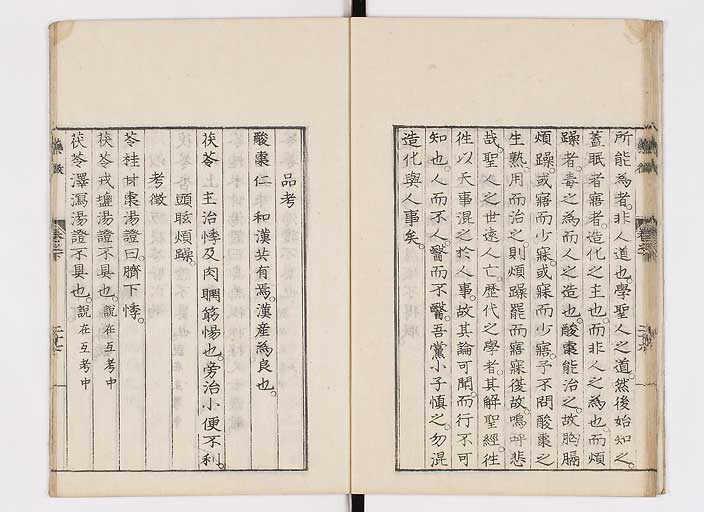 所能為者。非人道也。學聖人之道。然後始知之。
蓋眠者寤者。造化之主也。而非人之為也。而煩
躁者。毒之為而人之造也。酸棗能治之。故胸膈
煩躁。或寤而少寐。或寐而少寤。予不問酸棗之
生熟。用而治之。則煩躁罷而寤寐復故。嗚呼悲
哉。聖人之世遠人亡。歷代之學者。其解聖經。徃
徃以天事混之於人事。故其論可聞。而行不可
知也。人而不人。醫而不醫。吾黨小子慎之。勿混
造化與人事矣。
品考
酸棗仁 和漢共有焉。漢産為良也。
茯苓 主治悸及肉瞤筋惕也。旁治小便不利。
頭眩煩躁。
考徵
苓桂甘棗湯證曰。臍下悸。
茯苓戎鹽湯證不具也。說在互考中
茯苓澤瀉湯證不具也。說在互考中